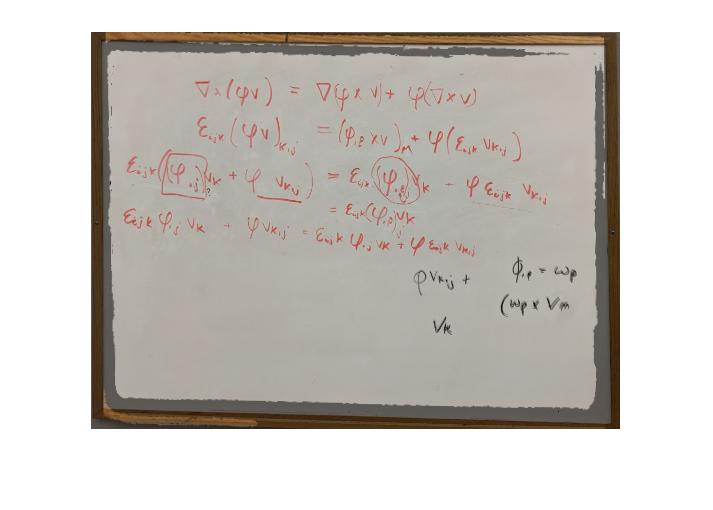 ∇×(φv) = ∇(φ × v) + φ(∇×v)
ε_ijk (φv)_k,j = (φ,p × v)_m + φ(ε_ijk v_k,j)
ε_ijk((φ,j)v_k + φ v_k,j) = ε_ijk(φ,p)_j v_k - φ ε_ijk v_k,j
= ε_ijk(φ,p)_j v_k
ε_ijk φ,j v_k + φ v_k,j = ε_ijk φ,j v_k + φ ε_ijk v_k,j
φ v_k,j + φ,p = w_p
(w_p × v_m
v_k